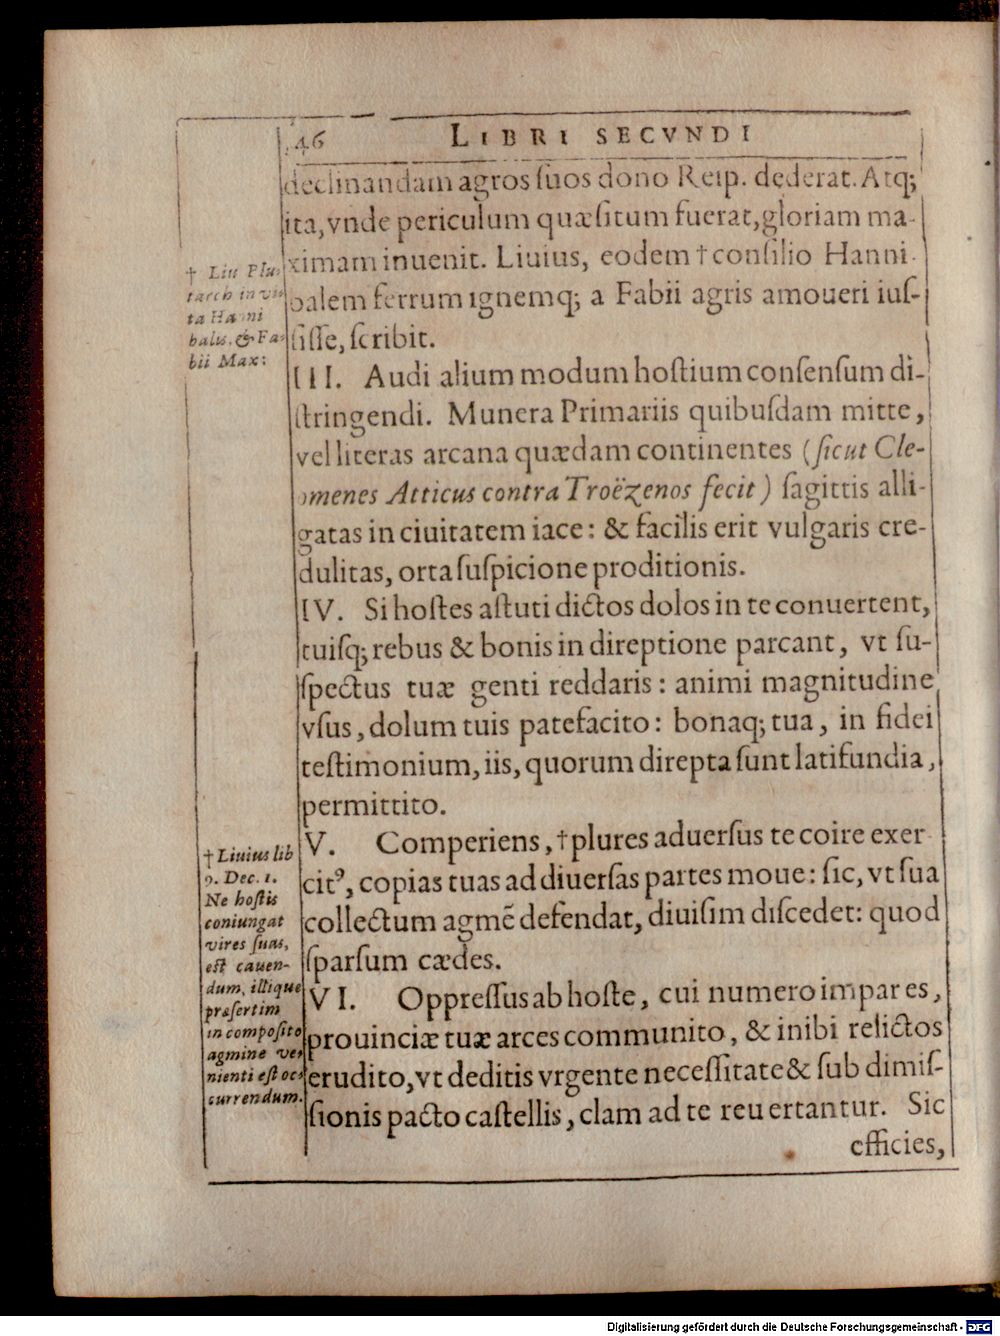 46
LIBRI SECVNDI
declinandam agros ſuos dono Reip. dederat. Atq;
ita, vnde periculum quæſitum fuerat, gloriam ma-
ximam inuenit. Liuius, eodem † conſilio Hanni-
balem ferrum ignemq; a Fabii agris amoueri iuſ-
ſiſſe, ſcribit.
† Liu Plu-
tarch in vi-
ta Hanni
balis. & Fa-
bii Max:
III. Audi alium modum hoſtium conſenſum di-
ſtringendi. Munera Primariis quibuſdam mitte,
vel literas arcana quædam continentes (ſicut Cle-
omenes Atticus contra Troëzenos fecit) ſagittis alli-
gatas in ciuitatem iace: & facilis erit vulgaris cre-
dulitas, orta ſuſpicione proditionis.
IV. Si hoſtes aſtuti dictos dolos in te conuertent,
tuiſq; rebus & bonis in direptione parcant, vt ſu-
ſpectus tuæ genti reddaris: animi magnitudine
vſus, dolum tuis patefacito: bonaq; tua, in fidei
teſtimonium, iis, quorum direpta ſunt latifundia,
permittito.
V. Comperiens, † plures aduerſus te coire exer-
citꝰ, copias tuas ad diuerſas partes moue: ſic, vt ſua
collectum agmē defendat, diuiſim diſcedet: quod
ſparſum cædes.
† Liuius lib
9. Dec. 1.
Ne hoſtis
coniungat
vires ſuas,
eſt cauen-
dum, illique
præſertim
incompoſito
agmine ve-
nienti eſt oc-
currendum.
VI. Oppreſſus ab hoſte, cui numero impar es,
prouinciæ tuæ arces communito, & inibi relictos
erudito, vt deditis vrgente neceſſitate & ſub dimiſ-
ſionis pacto caſtellis, clam ad te reuertantur. Sic
efficies,
Digitalisierung gefördert durch die Deutsche Forschungsgemeinschaft - DFG